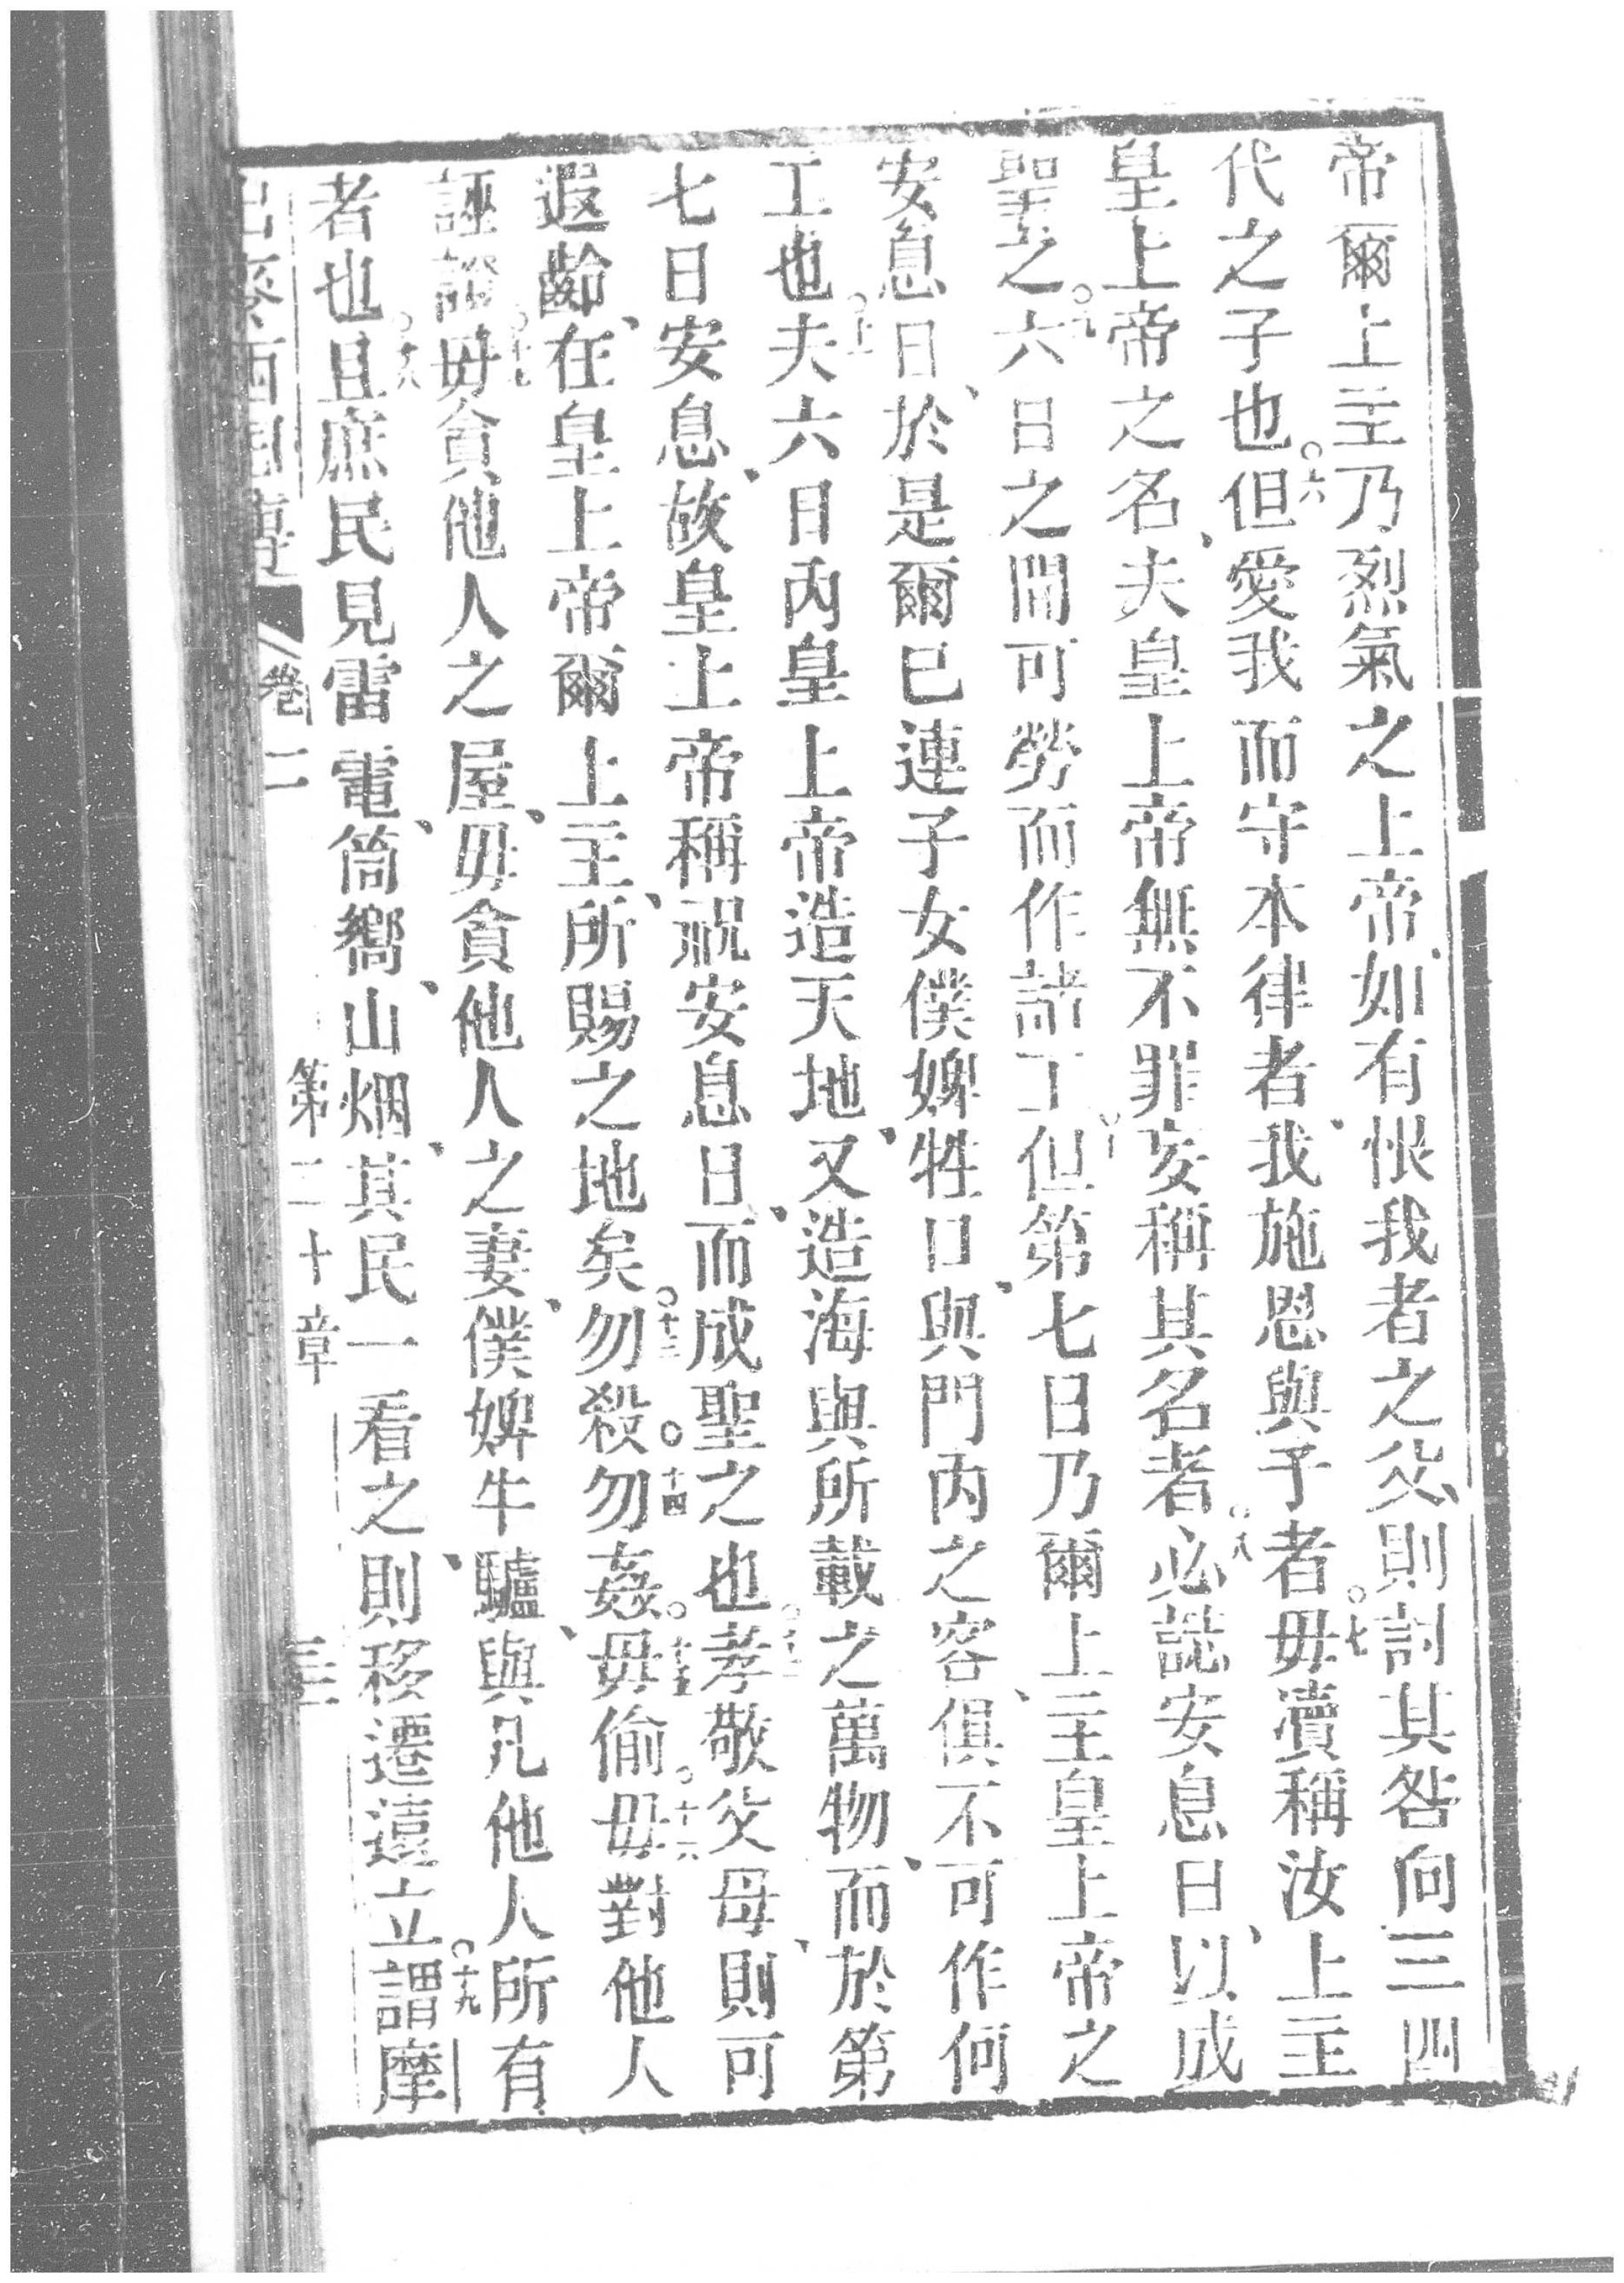 帝爾上主乃烈氣之上帝、如有恨我者之父、則討其咎向三四
代之子也○六但愛我而守本律者、我施恩與予者○七毋瀆稱汝上主
皇上帝之名、夫皇上帝無不罪妄稱其名者○八必誌安息日、以成
聖之○九六日之間可勞而作諸工○十但第七日乃爾上主皇上帝之
安息日、於是爾已連子女僕婢牲口、與門内之客、俱不可作何
工也○十一夫六日内皇上帝造天地、又造海與所載之萬物、而於第
七日安息、故皇上帝稱祝安息日、而成聖之也○十二孝敬父母、則可
遐齡、在皇上帝爾上主、所賜之地矣○十三勿殺○十四勿姦○十五毋偷○十六毋對他人
誣證○十七毋貪他人之屋、毋貪他人之妻、僕婢牛驢、與凡他人所有
者也○十八且庶民見雷電、筒嚮、山烟、其民一看之、則移遷遠立○十九謂摩
出麥西國傳 卷二 第二十章 三十三